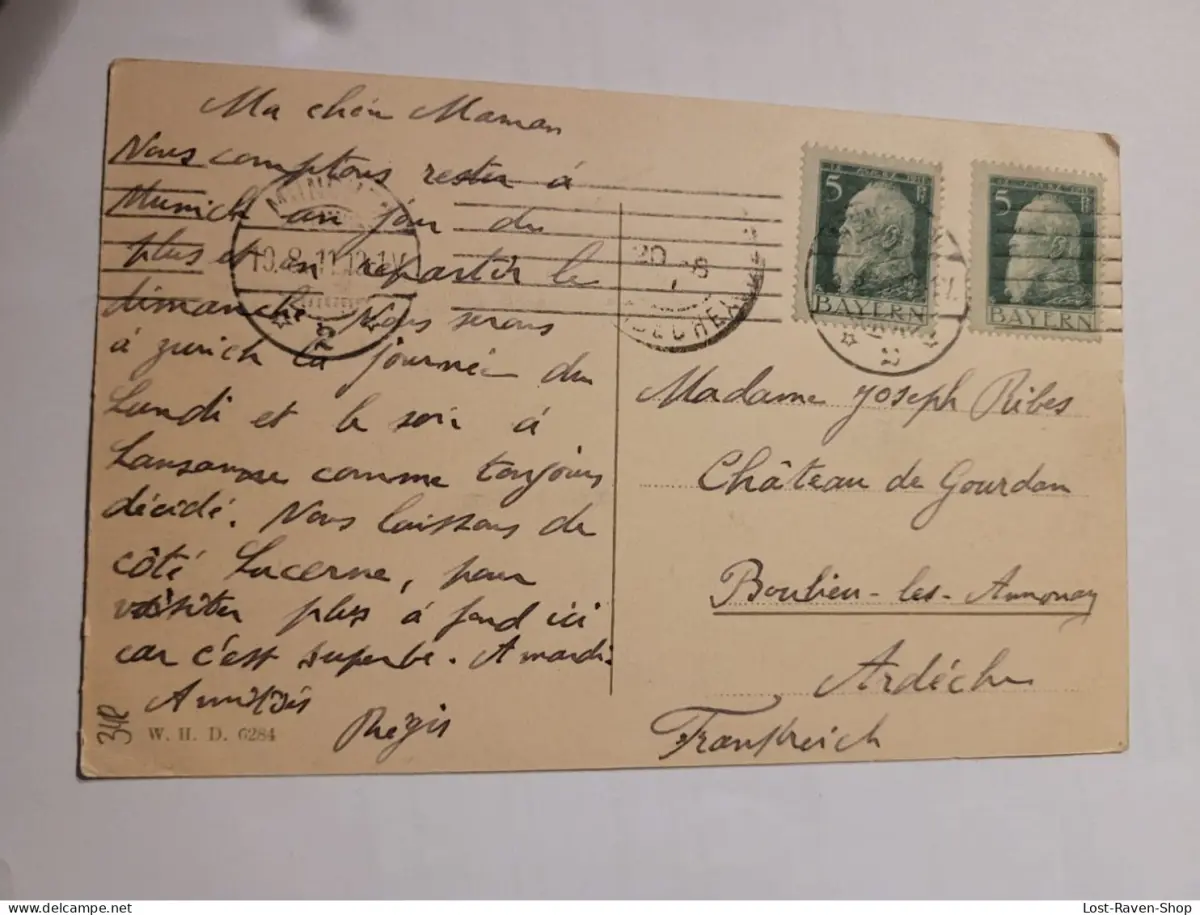 Ma chère Maman
Nous comptons rester à
Munich un jour de
plus et en repartir le
dimanche. Nous serons
à Zurich la journée du
Lundi et le soir à
Lausanne comme toujours
décidé. Nous laissons de
côté Lucerne, pour
visiter plus à fond ici
car c'est superbe. A mardi.
Amitiés
Régis
34R
W. H. D. 6284
19.8.11.12-1N
2
20 -8
ARDECHE
5
BAYERN
5
BAYERN
2
Madame Joseph Ribes
Château de Gourdan
Boulieu-les-Annonay
Ardèche
Frankreich
www.delcampe.net
Lost-Raven-Shop